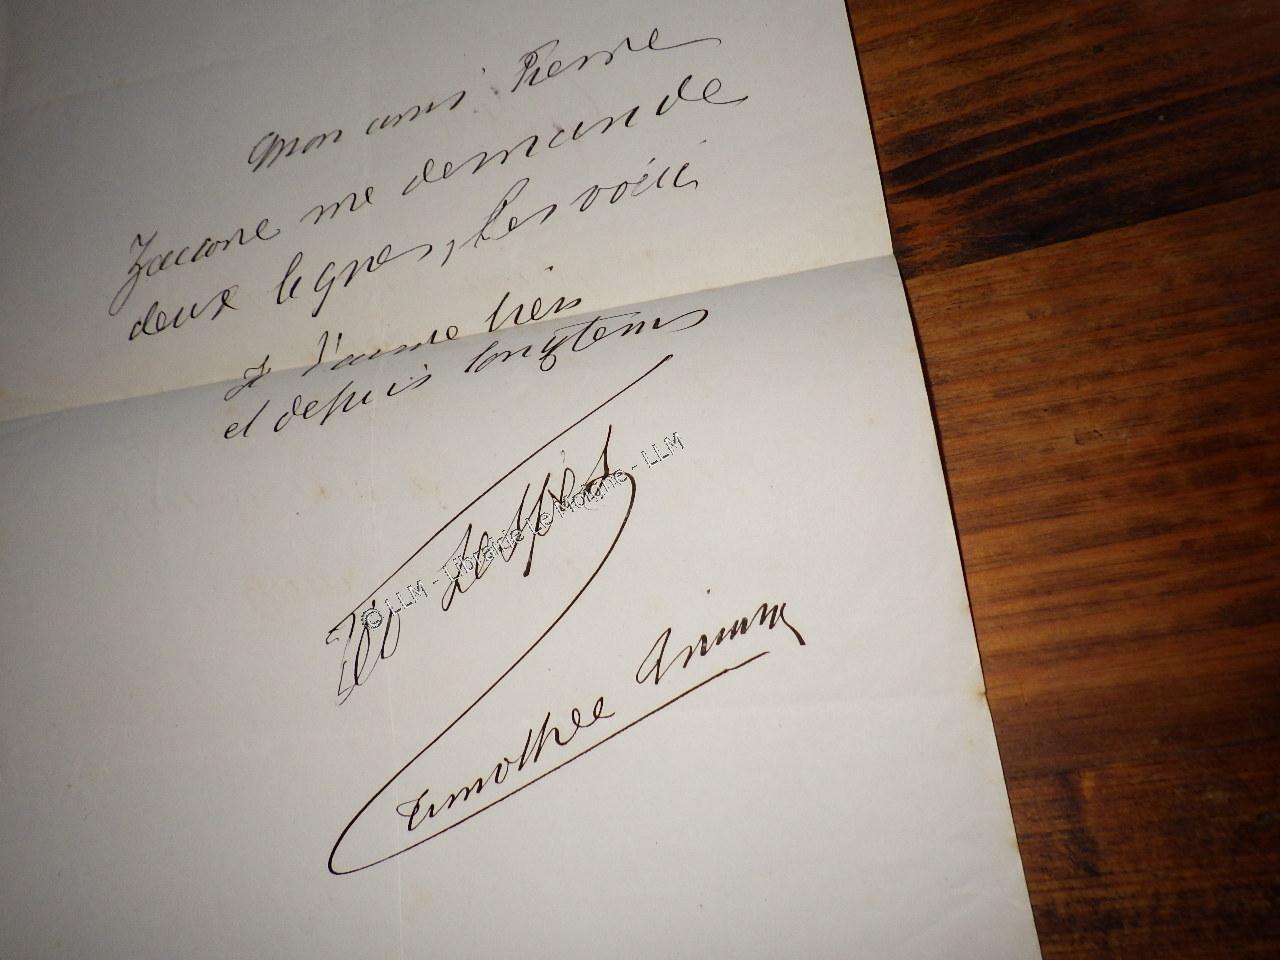 Mon ami Pierre
Zaccone me demande
deux lignes, les voici
Je l'aime bien
et depuis longtems
© LLM - Librairie Le Moine - LLM
Timothée Trimm